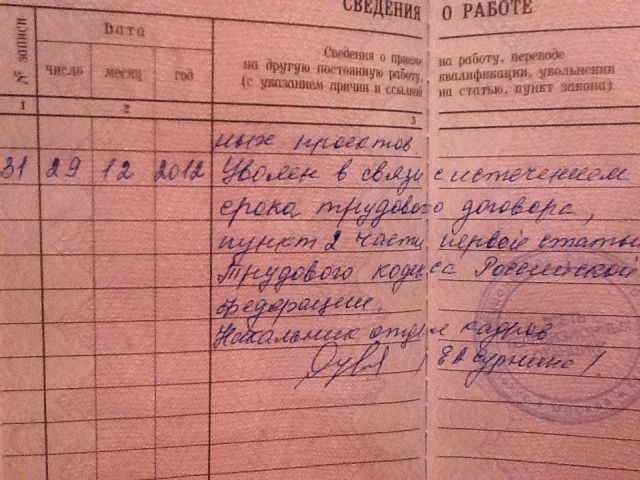 СВЕДЕНИЯ О РАБОТЕ
№ записи
Дата
число месяц год
Сведения о приеме на работу, переводе
на другую постоянную работу, квалификации, увольнении
(с указанием причин и ссылкой на статью, пункт закона)
1 2 3
ных проектов
31 29 12 2012 Уволен в связи с истечением
срока трудового договора,
пункт 2 части первой статьи
Трудового кодекса Российской
Федерации.
Начальник отдела кадров